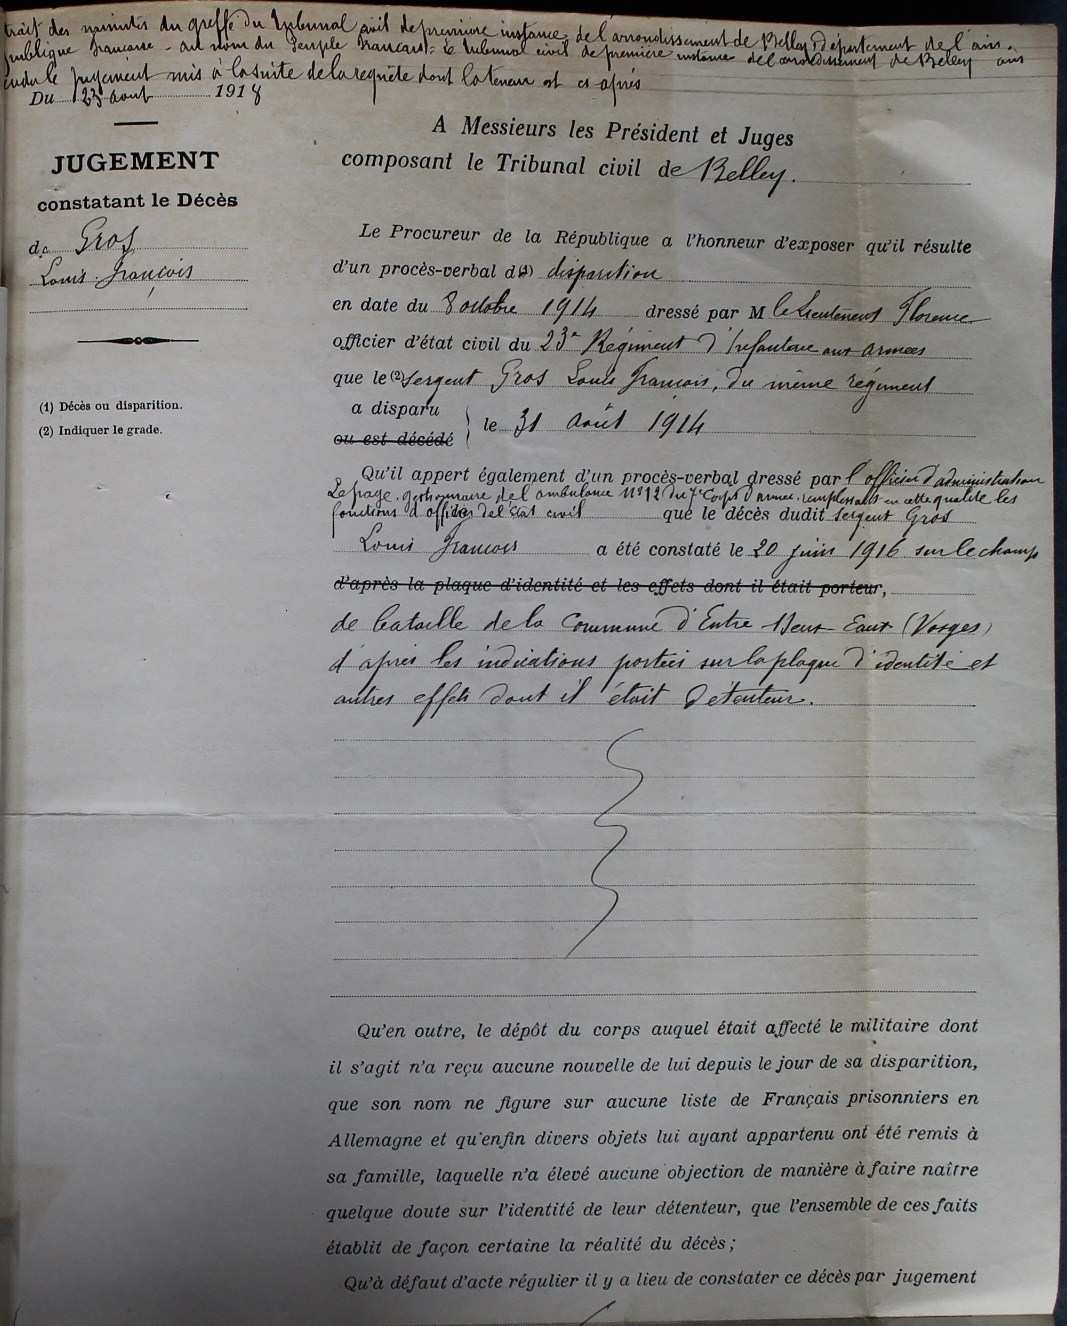 trait des minutes du greffe du Tribunal civil de première instance de l'arrondissement de Belley, département de l'ain.
publique française - au nom du Peuple français = Le tribunal civil de première instance de l'arrondissement de Belley
rendu le jugement mis à la suite de la requête dont la teneur est ci après
Du 23 août 1918
JUGEMENT
constatant le Décès
de Gros
Louis François
(1) Décès ou disparition.
(2) Indiquer le grade.
A Messieurs les Président et Juges
composant le Tribunal civil de Belley.
Le Procureur de la République a l'honneur d'exposer qu'il résulte
d'un procès-verbal d(1) disparition
en date du 8 octobre 1914 dressé par M le Lieutenant Florence
officier d'état civil du 23e Régiment d'Infanterie aux armées
que le (2) sergent Gros Louis François, du même régiment
a disparu
ou est décédé
le 31 août 1914
Qu'il appert également d'un procès-verbal dressé par l'officier d'administration
Lepage, gestionnaire de l'ambulance n° 12 du 7e Corps d'armée, remplissant en cette qualité les
fonctions d'officier de l'état civil que le décès dudit sergent Gros
Louis François a été constaté le 20 juin 1916 sur le champ
d'après la plaque d'identité et les effets dont il était porteur,
de bataille de la Commune d'Entre Deux Eaux (Vosges)
d'après les indications portées sur la plaque d'identité et
autres effets dont il était détenteur.
Qu'en outre, le dépôt du corps auquel était affecté le militaire dont
il s'agit n'a reçu aucune nouvelle de lui depuis le jour de sa disparition,
que son nom ne figure sur aucune liste de Français prisonniers en
Allemagne et qu'enfin divers objets lui ayant appartenu ont été remis à
sa famille, laquelle n'a élevé aucune objection de manière à faire naître
quelque doute sur l'identité de leur détenteur, que l'ensemble de ces faits
établit de façon certaine la réalité du décès ;
Qu'à défaut d'acte régulier il y a lieu de constater ce décès par jugement